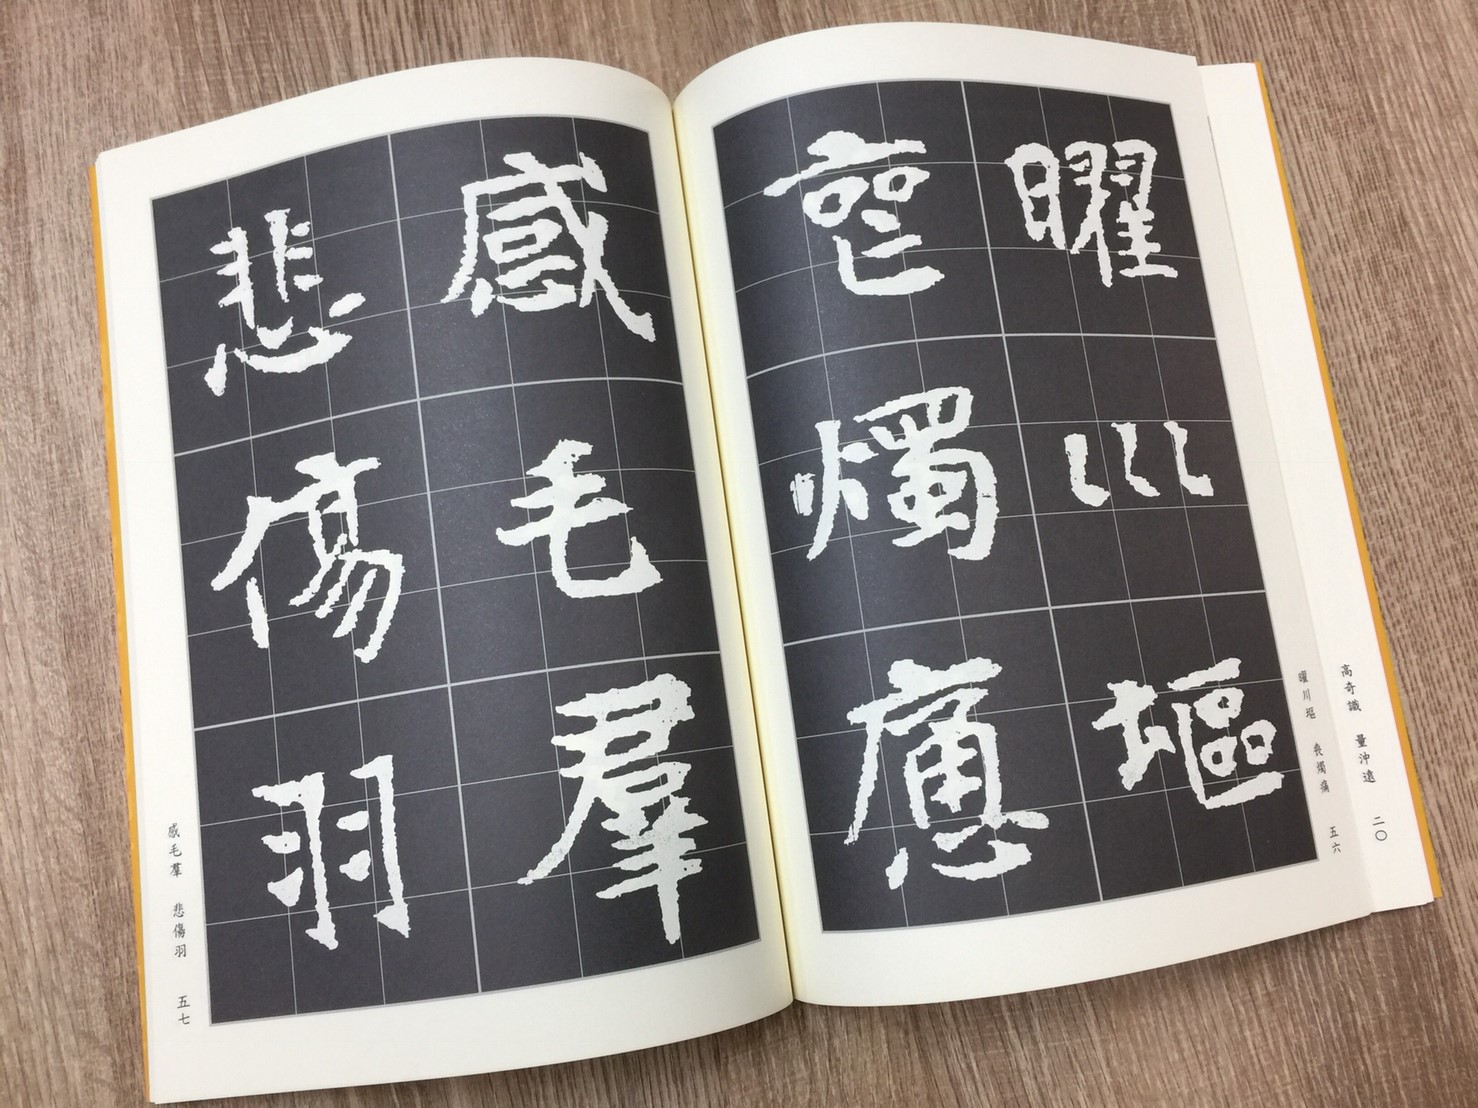 高奇識　量沖遠　二〇
曜川塸　喪燭痛　五六
曜川塸
喪燭痛
感毛羣
悲傷羽
感毛羣　悲傷羽　五七